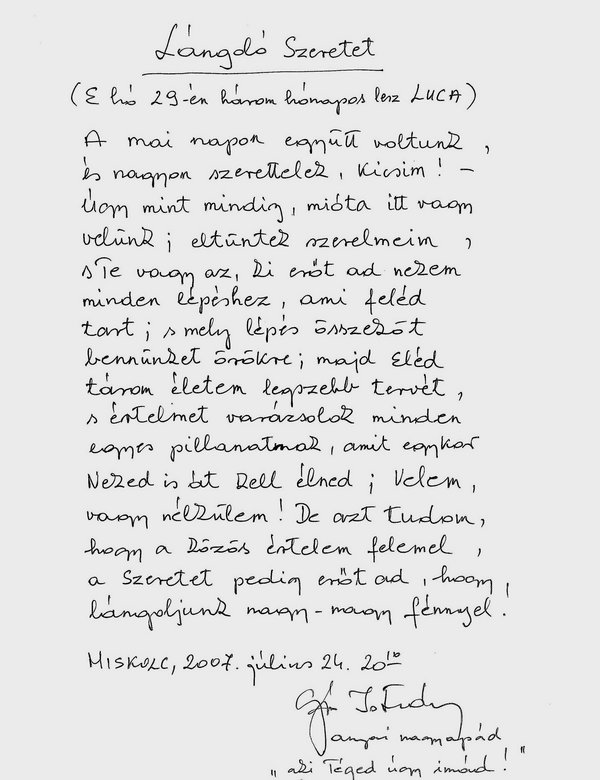 Lángoló Szeretet
(E hó 29-én három hónapos lesz LUCA)
A mai napon együtt voltunk,
és nagyon szerettelek, Kicsim! -
Úgy mint mindig, mióta itt vagy
velünk; eltüntek szerelmeim,
s Te vagy az, ki erőt ad nekem
minden lépéshez, ami feléd
tart; s mely lépés összeköt
bennünket örökre; majd Eléd
tárom életem legszebb tervét,
s értelmet varázsolok minden
egyes pillanatnak, amit egykor
Neked is át kell élned; Velem,
vagy nélkülem! De azt tudom,
hogy a közös értelem felemel,
a Szeretet pedig erőt ad, hogy,
lángoljunk nagy-nagy fénnyel.
MISKOLC, 2007. július 24. 20 10
anyai nagyapád
"aki Téged úgy imád!"